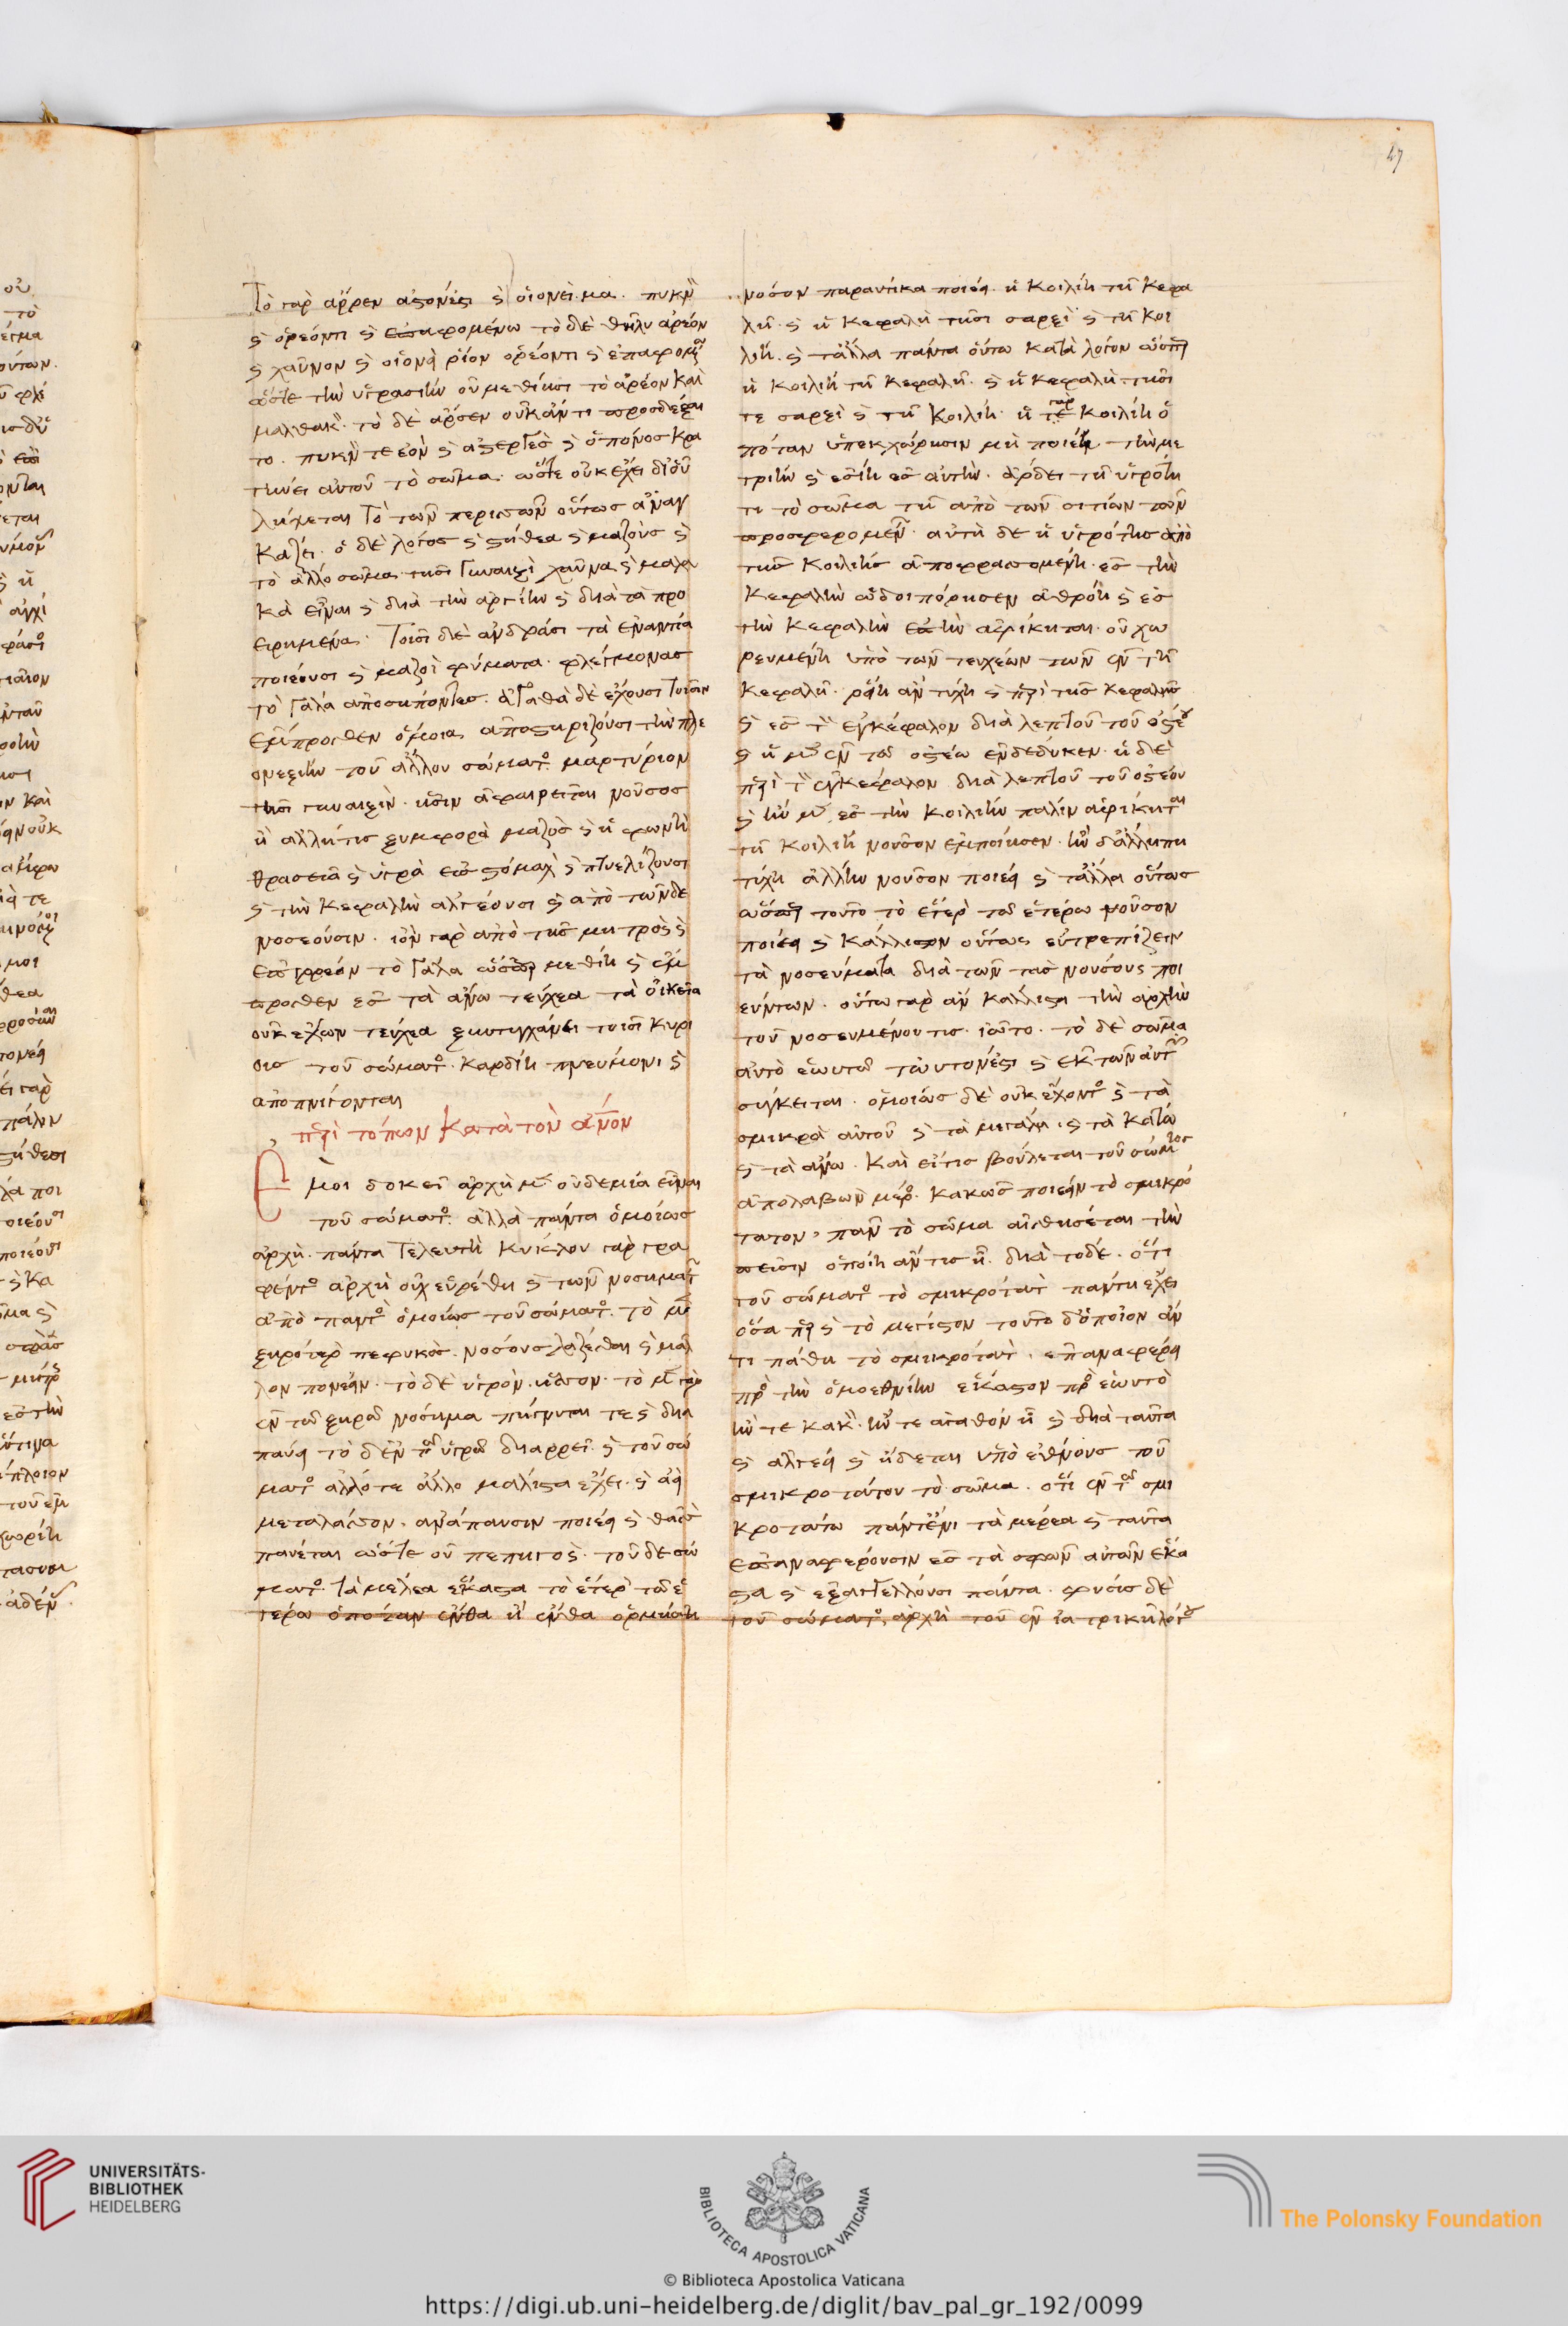 47
Τὸ γὰρ ἄρρεν ἀστενέει ϗ οἱονεὶ μα. πυκνὸν
ϗ ὁρέοντι ϗ ἐπαφρομένω τὸ δὲ θῆλυ ἀρέον
ϗ χαῦνον ϗ οἱονεὶ ῥίον ὁρέοντι ϗ ἐπαφομένω
ὥστε τὴν ὑγρασίην οὐ μεθίησι τὸ ἀρέον καὶ
μαλθακόν. τὸ δὲ ἄρσεν οὐκ ἄν τι προσδέξαι
το. πυκνόν τε ἐὸν ϗ ἀστεργές ϗ ὁ πόνος κρα
τύνει αὐτοῦ τὸ σῶμα. ὥστε οὐκ ἔχει δι' οὗ
λήψεται τὸ τῶν περισσῶν οὕτως ἀναγ
κάζει. ὁ δὲ λόγος ϗ στήθεα ϗ μαζοὺς ϗ
τὸ ἄλλο σῶμα τῇσι γυναιξὶ χαῦνα ϗ μαλα
κὰ εἶναι ϗ διὰ τὴν ἀργίην ϗ διὰ τὰ προ
ειρημένα. Τοῖσι δὲ ἀνδράσι τὰ ἐναντία
ποιέουσι ϗ μαζοὶ φύματα. φλέγμονας
τὸ γάλα ἀποσήποντες. ἀγαθὰ δὲ ἔχουσι τοῖσιν
ἔμπροσθεν ὅμοια. ἀποστηρίζουσι τὴν πλε
ονεξίην τοῦ ἄλλου σώματος. μαρτύριον
τῇσι γυναιξὶν. ᾗσιν ἀφαιρεῖται νοῦσος
ἢ ἄλλη τις ξυμφορὰ μαζὸς ϗ ἡ φωνὴ
θρασεῖα ϗ ὑγρὰ ἐς στόμαχον ϗ πτυελίζουσι
ϗ τὴν κεφαλὴν ἀλγέουσι ϗ ἀπὸ τῶνδε
νοσέουσιν. ἰὸν γὰρ ἀπὸ τῆς μητρὸς ϗ
ἐπιρρέον τὸ γάλα ὥσπερ μεθίη ϗ ἔμ
προσθεν ἐς τὰ ἄνω τεύχεα τὰ οἰκεῖα
οὐκ ἔχων τεύχεα ξυντυγχάνει τοῖσι κυρί
οις τοῦ σώματος. καρδίη πνεύμονι ϗ
ἀποπνίγονται
περὶ τόπων κατὰ τὸν ἄνον
Ἐμοὶ δοκεῖ ἀρχὴ μὲν οὐδεμία εἶναι
τοῦ σώματος. ἀλλὰ πάντα ὁμοίως
ἀρχὴ. πάντα τελευτὴ κυκλου γὰρ γρα
φέντος ἀρχὴ οὐχ εὑρέθη ϗ τῶν νοσημάτων
ἀπὸ παντὸς ὁμοίως τοῦ σώματος. τὸ μὲν
ξηρότερον πεφυκὸς. νοσόυς λαζέσθαι ϗ μᾶλ
λον πονέειν. τὸ δὲ ὑγρὸν. ἧσσον. τὸ μὲν γὰρ
ἐν τῶ ξηρῶ νόσημα πήγνυται τε ϗ δια
παύει τὸ δ' ἐν τῶ ὑγρῶ διαρρεῖ. ϗ τοῦ σώ
ματος ἄλλοτε ἄλλο μάλιστα ἔχει. ϗ ἀεὶ
μεταλάσσον. ἀνάπαυσιν ποιέει ϗ θᾶσσον
παύεται ὥστε οὐ πεπηγὸς. τοῦ δε σώ
ματος τὰ μέλεα ἕκαστα τὸ ἕτερον τῶ ἑ
τέρω ὁπόταν ἔνθα ἢ ἔνθα ὁρμήση
νοόσον παραυτίκα ποιέει. ἡ κοιλίη τῆ κεφα
λῆ. ϗ ἡ κεφαλὴ τῇσι σαρξὶ ϗ τῆ κοι
λίη. ϗ τἄλλα πάντα οὕτω κατὰ λόγον ὥσπερ
ἡ κοιλίη τῆ κεφαλῆ. ϗ ἡ κεφαλὴ τῇσι
τε σαρξὶ ϗ τῆ κοιλίη. ἡ γὰρ κοιλίη ὁ
πόταν ὑπεκχώρησιν μὴ ποιέη. τὴν με
τρίην ϗ ἐσίη ἐς αὐτὴν. ἄρδει τῆ ὑγρότη
τι τὸ σῶμα τῆ ἀπὸ τῶν σιτίων τῶν
προσφερομένων. αὐτὴ δε ἡ ὑγρότης ἀπὸ
τῆς κοιλίης ἀποφρασσομένη. ἐς τὴν
κεφαλὴν ὡδοιπόρησεν ἀθρόη ϗ ἐς
τὴν κεφαλὴν ἐπὴν ἀφίκηται. οὐ χω
ρευμένη ὑπὸ τῶν τευχέων τῶν ἐν τῆ
κεφαλῆ. ῥέη ἂν τύχη ϗ περὶ τῆς κεφαλῆς
ϗ ἐς τὸν ἐγκέφαλον διὰ λεπτοῦ τοῦ ὀστέου
ϗ ἡ μὲν ἐν τῶ ὀστέω ἐνδεδύκεν. ἡ δὲ
περὶ τὸν ἐγκέφαλον διὰ λεπτοῦ τοῦ ὀστέου
ϗ ἢν μὲν ἐς τὴν κοιλίην πάλιν ἀφίκηται
τῆ κοιλίη νοῦσον ἐμποίησεν. ἢν δ' ἄλλη πη
τύχη ἄλλην νοῦσον ποιέει ϗ τἄλλα οὕτως
ὥσπερ τοῦτο τὸ ἕτερον τῶ ἑτέρω νοῦσον
ποιέει ϗ κάλλιστον οὕτως εὐτρεπίζειν
τὰ νοσεύματα διὰ τῶν τὰς νούσους ποι
εύντων. οὕτω γὰρ ἂν κάλλιστα τὴν ἀρχὴν
τοῦ νοσευμένου τις. ἰῶτο. τὸ δὲ σῶμα
αὐτὸ ἑωυτῶ τὠυτονέστι ϗ ἐκ τῶν αὐτῶν
σύγκειται. ὁμοίως δὲ οὐκ ἔχοντος ϗ τὰ
σμικρὰ αὐτοῦ ϗ τὰ μεγάλα. ϗ τὰ κάτω
ϗ τὰ ἄνω. Καὶ εἴ τις βούλεται τοῦ σώματος
ἀπολαβὼν μέρος. κακῶς ποιέειν τὸ σμικρό
τατον, πᾶν τὸ σῶμα αἰσθήσεται τὴν
πεῖσιν ὁποίη ἄν τις ἦ. διὰ τοδέ. ὅτι
τοῦ σώματος τὸ σμικρότατον πάντη ἔχει
ὅσα περ ϗ τὸ μέγιστον τοῦτο δ' ὁποῖον ἄν
τι πάθη τὸ σμικρότατον. ἐπαναφέρει
πρὸς τὴν ὁμοεθνίην ἕκαστον πρὸς ἑωυτὸ
ἤν τε κακὸν. ἤν τε ἀγαθόν ἦ ϗ διὰ ταῦτα
ϗ ἀλγέει ϗ ἥδεται ὑπὸ ἔθνους τοῦ
σμικροτάτου τὸ σῶμα. ὅτι ἐν τῶ σμι
κροτάτω πάντ' ἔνι τὰ μέρεα ϗ ταῦτα
ἐπαναφέρουσιν ἐς τὰ σφῶν αὐτῶν ἕκα
στα ϗ ἐξαγγέλλουσι πάντα. φυσις δὲ
τοῦ σώματος, ἀρχὴ τοῦ ἐν ἰατρικῆ λόγου
UNIVERSITÄTS-
BIBLIOTHEK
HEIDELBERG
BIBLIOTECA APOSTOLICA VATICANA
The Polonsky Foundation
© Biblioteca Apostolica Vaticana
https://digi.ub.uni-heidelberg.de/diglit/bav_pal_gr_192/0099